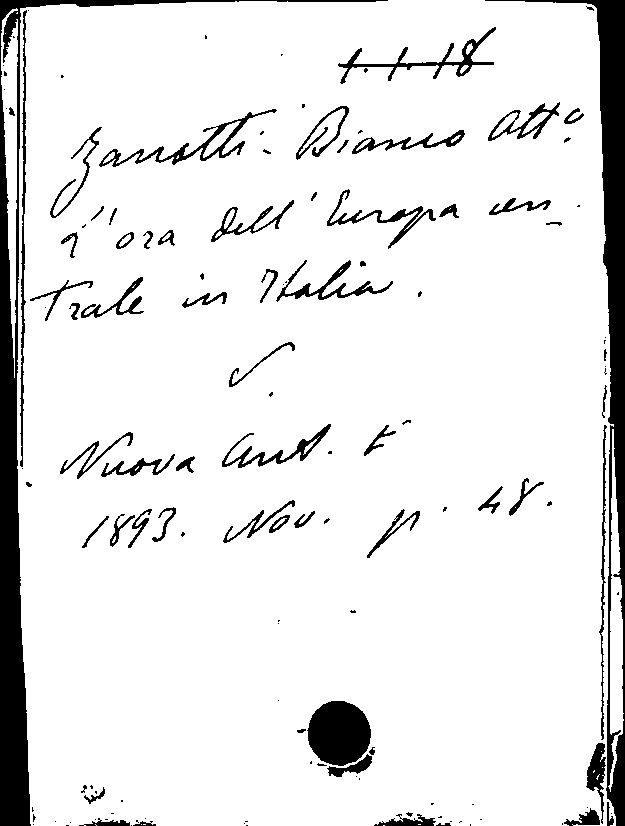 1.1.18
Zanotti-Bianco Att°.
L'ora dell'Europa cen-
trale in Italia.
V.
Nuova Ant.
1893. Nov. p. 48.